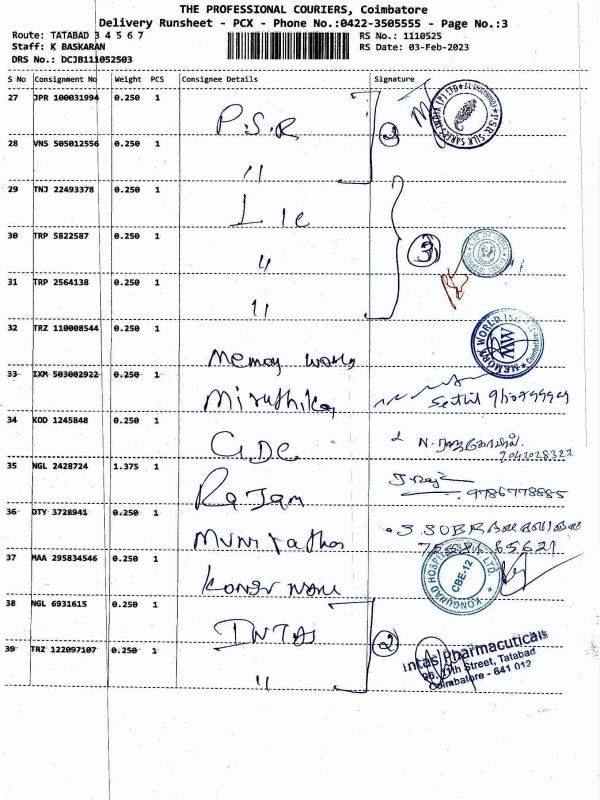 THE PROFESSIONAL COURIERS, Coimbatore
Delivery Runsheet - PCX - Phone No.:0422-3505555 - Page No.:3
Route: TATABAD 3 4 5 6 7
RS No.: 1110525
Staff: K BASKARAN
RS Date: 03-Feb-2023
DRS No.: DCJB111052503
S No Consignment No Weight PCS Consignee Details Signature
27 JPR 100031994 0.250 1 P.S.R 2
28 VNS 505012556 0.250 1 "
29 TNJ 22493378 0.250 1 LIC
30 TRP 5822587 0.250 1 " 3
31 TRP 2564138 0.250 1 "
32 TRZ 110008544 0.250 1 Memoy World
MEMORY WORLD
MW
33 IXM 503002922 0.250 1 Miruthika
34 KOD 1245848 0.250 1 G.DC N.
9042028322
35 NGL 2428724 1.375 1 Rajam
9786778885
36 OTY 3728941 0.250 1
37 MAA 295834546 0.250 1
KONGUNAD HOSPITAL LTD
CBE-12
38 NGL 6931615 0.250 1 INTAS
39 TRZ 122097107 0.250 1 " 2
Intas Pharmacuticals
96, 11th Street, Tatabad
Coimbatore - 641 012